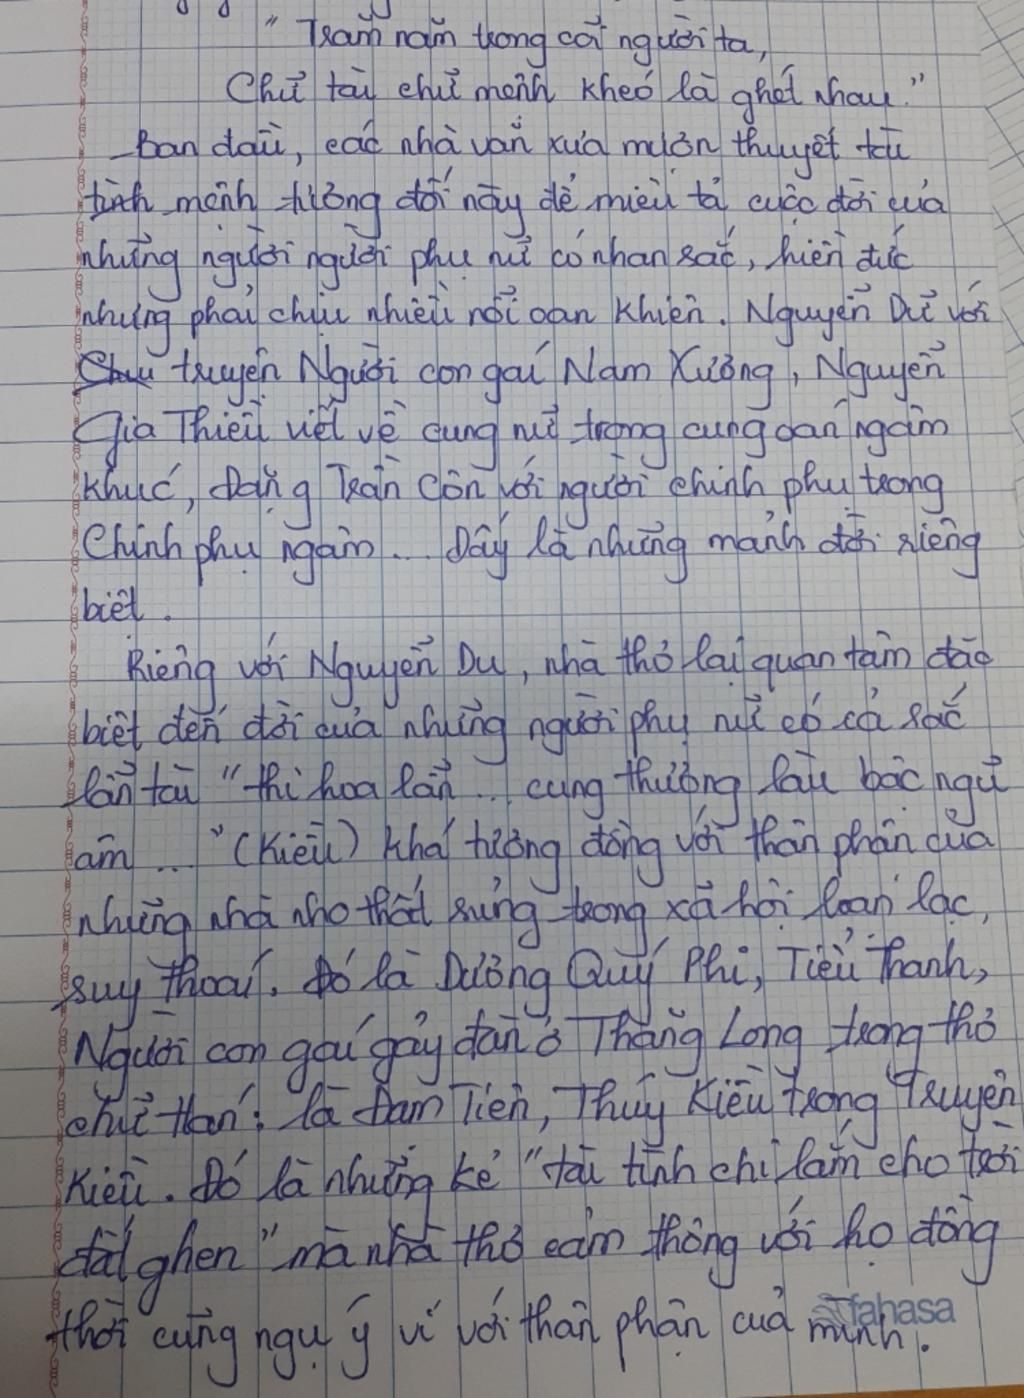 " Trăm năm trong cõi người ta,
Chữ tài chữ mệnh khéo là ghét nhau."
Ban đầu, các nhà văn xưa mượn thuyết tài
tình mệnh tương đối này để miêu tả cuộc đời của
những người người phụ nữ có nhan sắc, hiền đức
nhưng phải chịu nhiều nỗi oan khiên. Nguyễn Dữ với
truyện Người con gái Nam Xương, Nguyễn
Gia Thiều viết về cung nữ trong cung oán ngâm
khúc, Đặng Trần Côn với người chinh phụ trong
Chinh phụ ngâm... Đấy là những mảnh đời riêng
biệt.
Riêng với Nguyễn Du, nhà thơ lại quan tâm đặc
biệt đến đời của những người phụ nữ có cả sắc
lẫn tài "thi hoạ lẫn... cung thương lầu bậc ngũ
âm ... "(Kiều) khá tương đồng với thân phận của
những nhà nho thất sủng trong xã hội loạn lạc,
suy thoái. Đó là Dương Quý Phi, Tiểu Thanh,
Người con gái gảy đàn ở Thăng Long trong thơ
chữ Hán; là Đạm Tiên, Thúy Kiều trong Truyện
Kiều. Đó là những kẻ "tài tình chi lắm cho trời
đất ghen" mà nhà thơ cảm thông với họ đồng
thời cũng ngụ ý ví với thân phận của mình.
fahasa